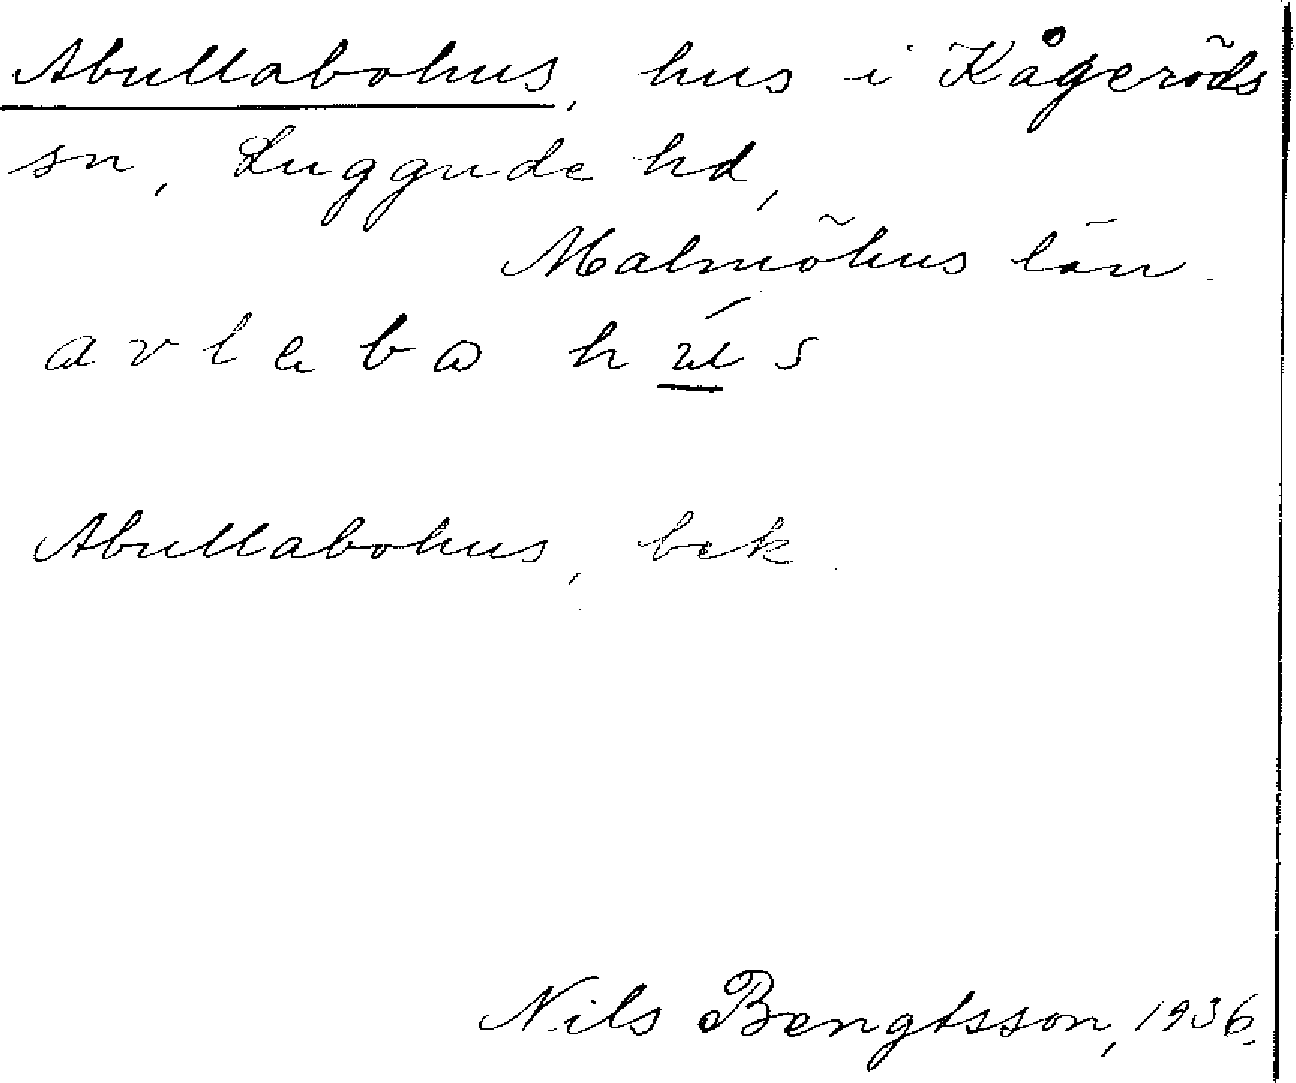 Abullabohus, hus i Kågeröds
sn, Luggude hd,
Malmöhus län.
Abullabohus, bek.
Nils Bengtsson, 1936.